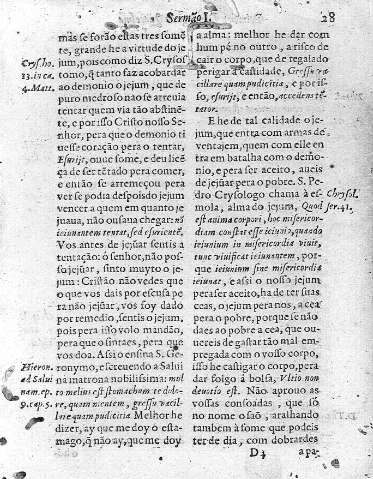 Sermão I.
28
mas se forão estas tres somẽ
te, grande he a virtude do je
jum, pois como diz S. Crysos
tomo, q̃ tanto faz acobardar
ao demonio o jejum, que de
puro medrosso não se atreuia
tentar quem via tão abstinẽ-
te, e por isso Cristo nosso Se-
nhor, pera que o demonio ti
nesse coração pera o tentar,
Esurijt, ouue fome, e deu licẽ
ça de ser tẽtado pera comer,
e então se arremeçou pera
ver se podia despoisdo jejum
vencer a quem em quanto je
juaua, não ousana chegar: nõ
ieiunantem tentat, sed esurientẽ.
Vos antes de jejuar sentis a
tentação: ó senhor, não pos-
so jejuar, sinto muyto o je-
jum: Cristão não vedes que
o que vos dais por escusa pa
ra não jejuar, vos foy dado
por remedio, sentis o jejum,
pois pera isso volo mandão,
pera que o sintaes, pera que
vos doa. Asi o ensina S. Ge-
ronymo, escreuendo a Salui
na matrona nobilissima: mul
to melius est stomachum te dolo-
re, quam mentem, gressu vacil-
lare quam pudicitia Melhor he
dizer, ay que me doy o esta-
mago, q̃ não ay, que me doy
Cryso. ho.
13. in ca.
4. Matt.
Hieron.
ad Salui
nam. ep.
9. cap. 5.
a alma: melhor he dar com
hum pé no outro, a risco de
cair o corpo, que de regalado
perigar a castidade, Gressu va
cillare quam pudicitia, e por is-
so, esurijt, e então, accedens tẽ-
tator.
E he de tal calidade o je-
jum, que entra com armas de
ventajem, quem com elle en
tra em batalha com o demo-
nio, e pera ser aceito, aueis
de jejũar pera o pobre. S. Pe-
dro Crysologo chama à es-
mola, alma do jejum, Quod
est anima corpori, hoc misericor-
diam constat esse ieiunio, quando
ieiunium in misericordia viuit,
tunc viuificat ieiunantem, por-
que ieiunium sine misericordia
ieiunat, e assi o nosso jejum
pera ser aceito, ha de ter suas
ceas, o jejum pera nos, a cea
pera o pobre, porque se não
daes ao pobre a cea, que ou-
uereis de gastar tão mal em-
pregada com o vosso corpo,
isso he castigar o corpo, pera
dar folgo á bolsa, Vltio non
deuotio est. Não aprouo as
vossas consoadas, que só
no nome o são, aralhando
tambem à some que podeis
ter de dia, com dobrardes
Chrysol.
ser. 41.
D 4
apa-